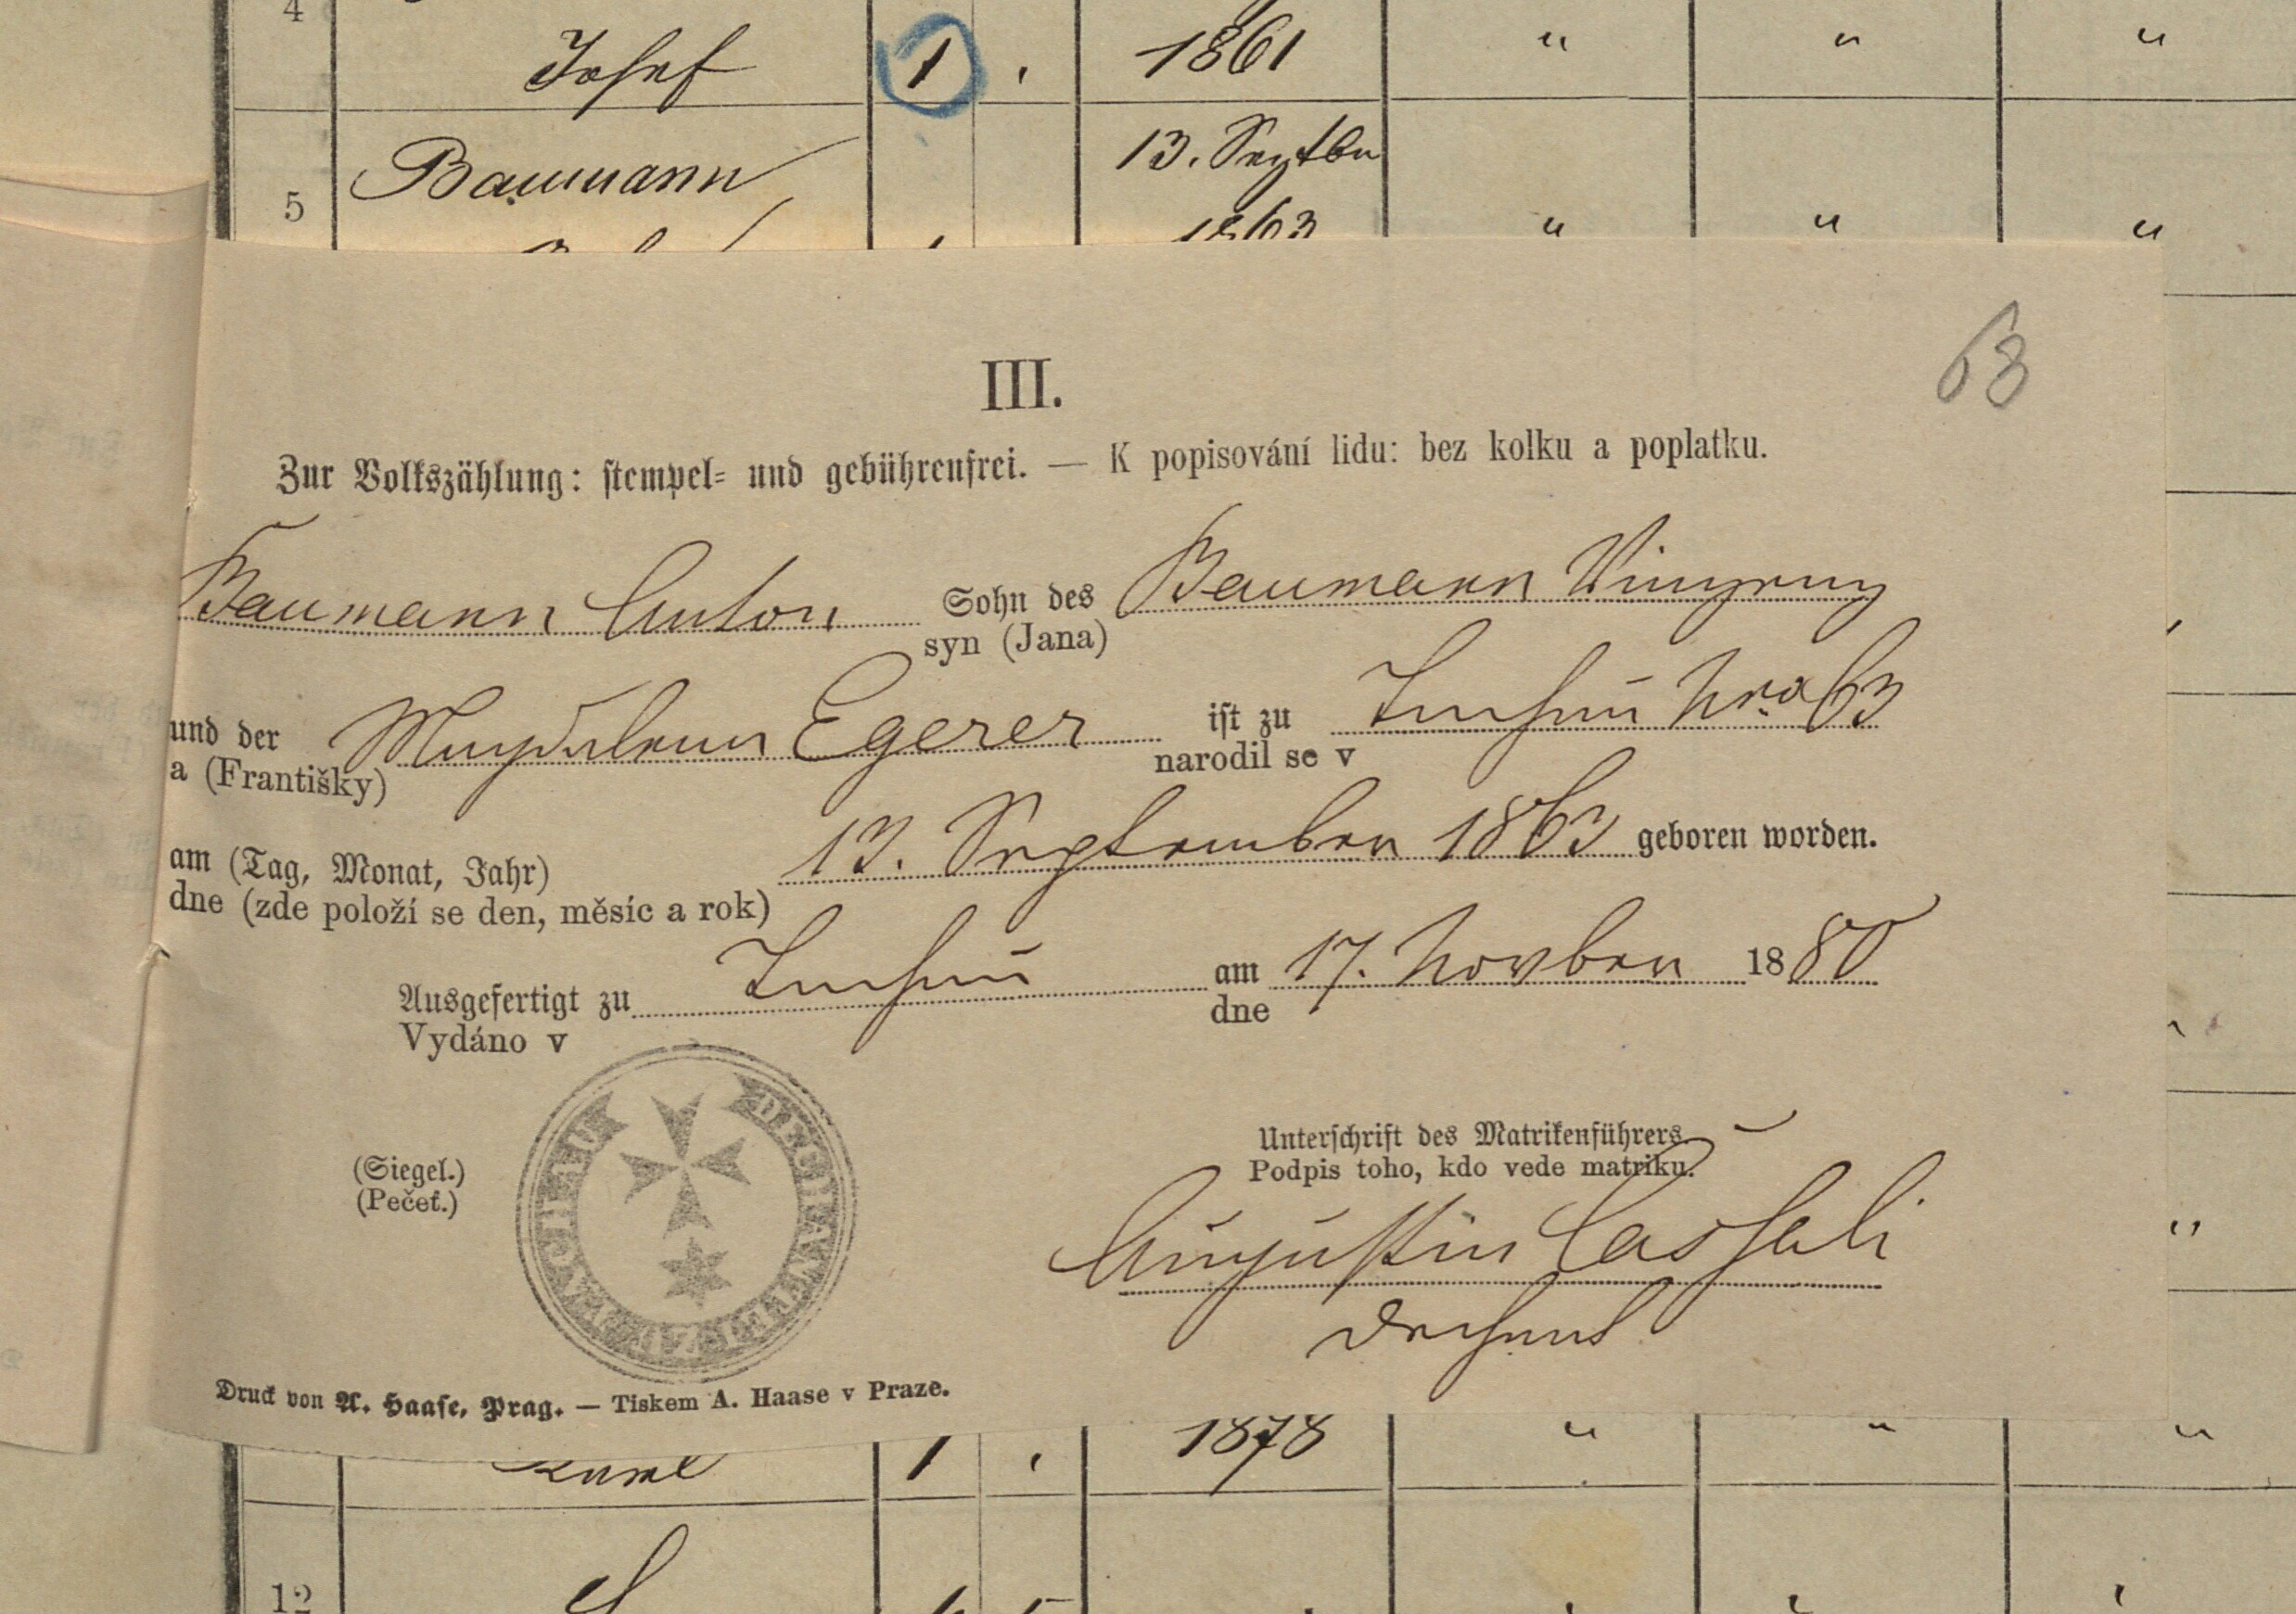 4
Josef 1 1861 " " "
13. Septbr
5 Baumann
1863 " " "
63
III.
Zur Volkszählung: stempel= und gebührenfrei. — K popisování lidu: bez kolku a poplatku.
Baumann Anton Sohn des Baumann Vinzenz
syn (Jana)
und der Magdalena Egerer ist zu Tachau Nro 63
a (Františky) narodil se v
am (Tag, Monat, Jahr) 13. September 1863 geboren worden.
dne (zde položí se den, měsíc a rok)
Ausgefertigt zu Tachau am 17. Novber 1880
Vydáno v dne
DECHANTEI ZU TACHAU
Unterschrift des Matrikenführers
Podpis toho, kdo vede matriku.
(Siegel.)
(Pečeť.)
Augustin Cassali
Dechant
Druck von A. Haase, Prag. — Tiskem A. Haase v Praze.
1 1878 " " "
12